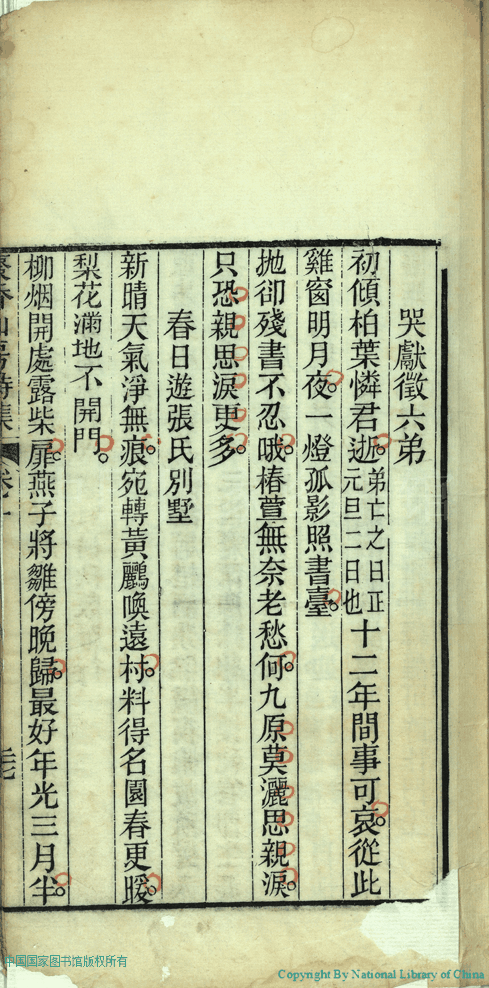 哭獻徵六弟
初傾柏葉憐君逝。弟亡之日正元旦二日也十二年間事可哀。從此
雞窗明月夜。一燈孤影照書臺。
拋卻殘書不忍哦。椿萱無奈老愁何。九原莫灑思親淚。
只恐親思淚更多。
春日遊張氏別墅
新晴天氣淨無痕。宛轉黃鸝喚遠村。料得名園春更暖。
梨花滿地不開門。
柳烟開處露柴扉。燕子將雛傍晚歸。最好年光三月半。
山房詩集 卷一
中国国家图书馆版权所有
Copyright By National Library of China